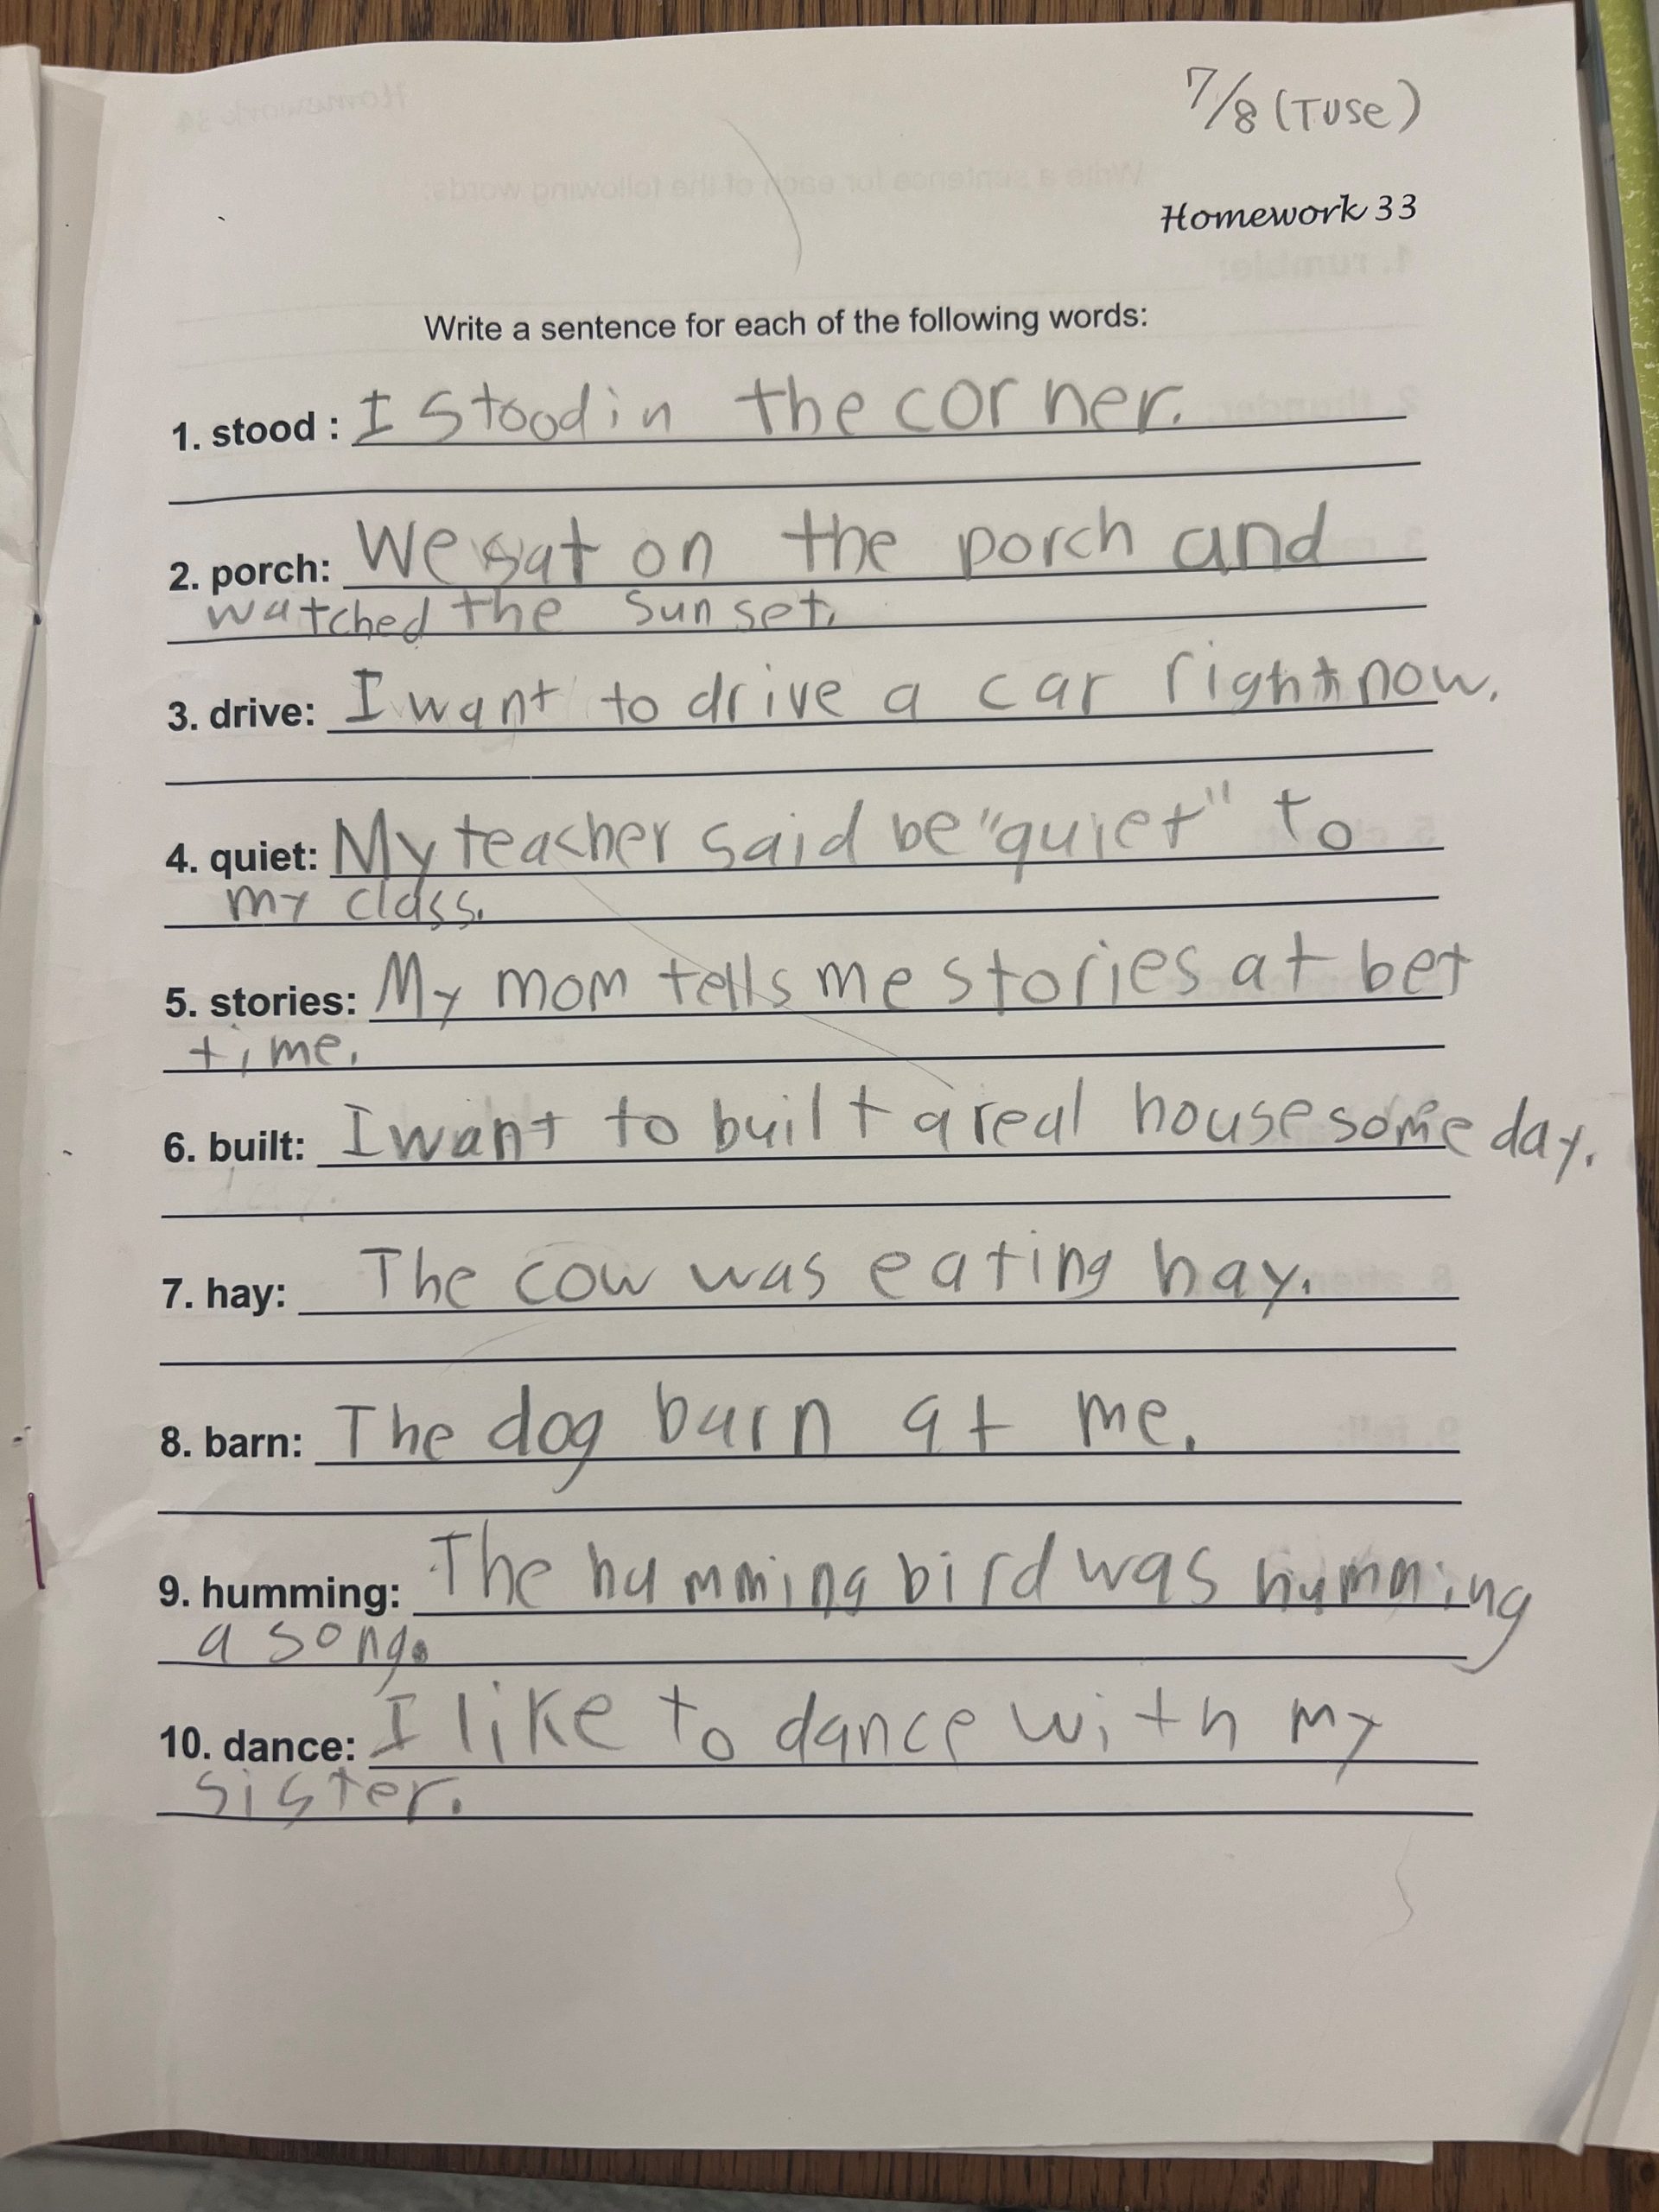 7/8 (Tuse)
Homework 33
Write a sentence for each of the following words:
1. stood : I stood in the corner.
2. porch: We sat on the porch and
watched the sunset.
3. drive: I want to drive a car right now.
4. quiet: My teacher said be "quiet" to
my class.
5. stories: My mom tells me stories at bet
time.
6. built: I want to built a real house some day.
7. hay: The cow was eating hay.
8. barn: The dog barn at me.
9. humming: The humming bird was humming
a song.
10. dance: I like to dance with my
sister.